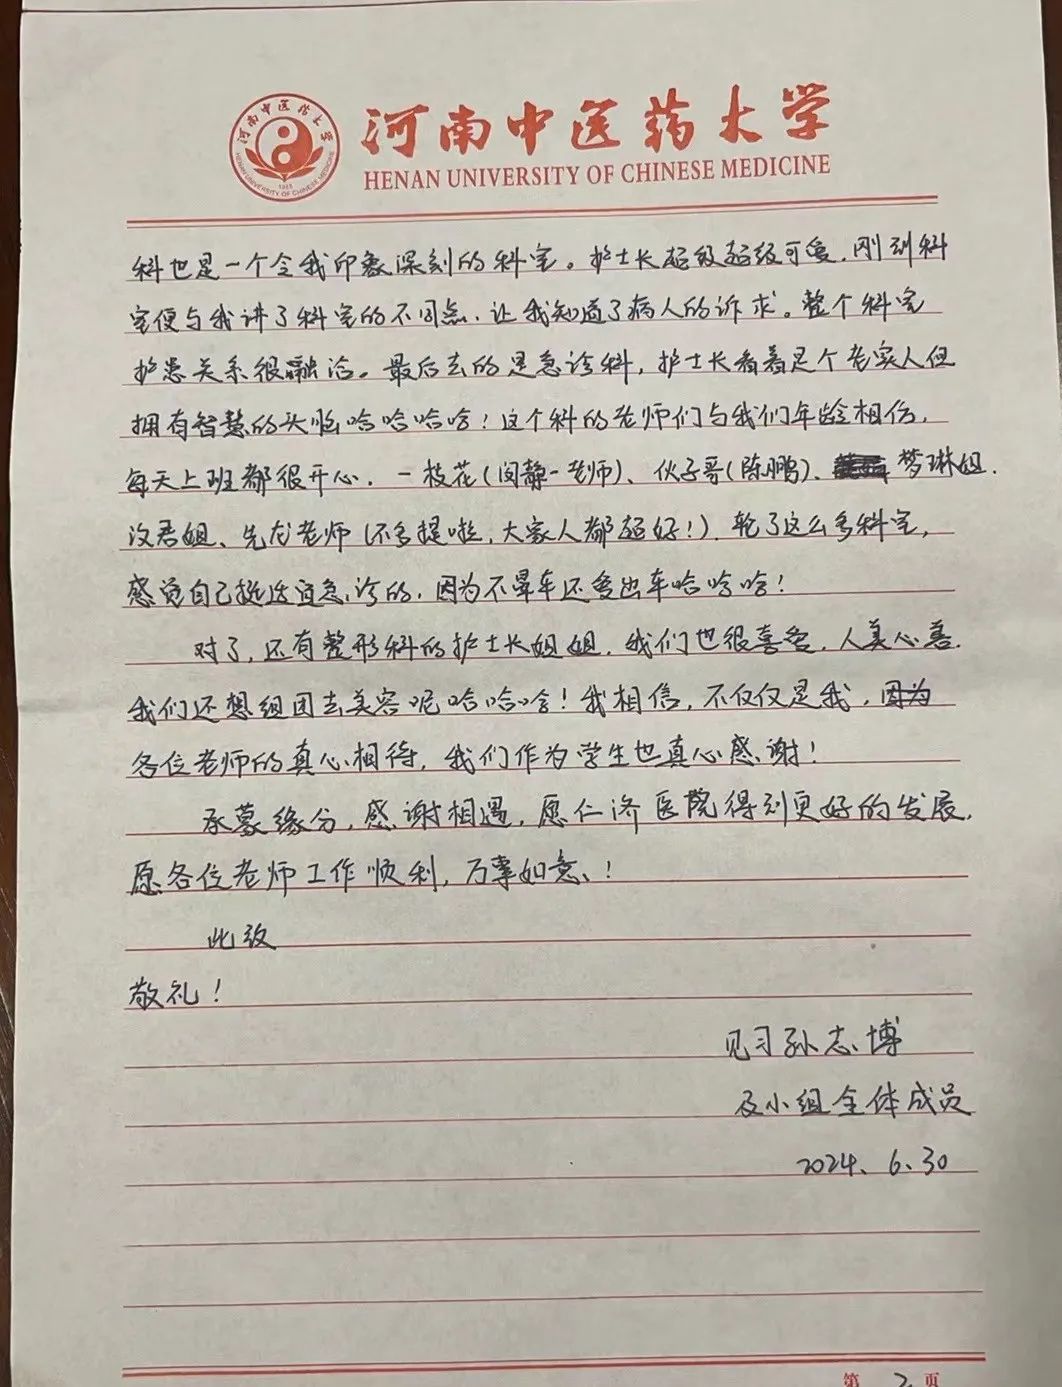 河南中医药大学
HENAN UNIVERSITY OF CHINESE MEDICINE
河南中医药大学
HENAN UNIVERSITY OF CHINESE MEDICINE
1958
科也是一个令我印象深刻的科室。护士长超级超级可爱，刚到科
室便与我讲了科室的不同点，让我知道了病人的诉求。整个科室
护患关系很融洽。最后去的是急诊科，护士长看着是个老实人但
拥有智慧的头脑哈哈哈哈！这个科的老师们与我们年龄相仿，
每天上班都很开心，一枝花（闵静一老师）、伙子哥（陈鹏）、梦琳姐、
汶君姐、先龙老师（不多提啦，大家人都超好！）轮了这么多科室，
感觉自己挺适宜急诊的，因为不晕车还爱出车哈哈哈！
对了，还有整形科的护士长姐姐，我们也很喜爱，人美心善，
我们还想组团去美容呢哈哈哈！我相信，不仅仅是我，因为
各位老师的真心相待，我们作为学生也真心感谢！
承蒙缘分，感谢相遇，愿仁济医院得到更好的发展，
愿各位老师工作顺利，万事如意！
此致
敬礼！
见习孙志博
及小组全体成员
2024、6、30
第 2 页